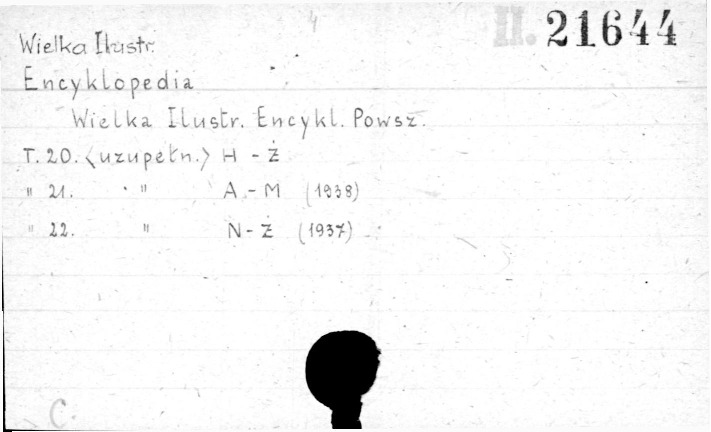 4
II. 21644
Wielka Ilustr.
Encyklopedia
Wielka Ilustr. Encykl. Powsz.
T. 20. <uzupełn.> H - Ż
" 21. " A - M (1938)
" 22. " N - Ż (1937)
C.